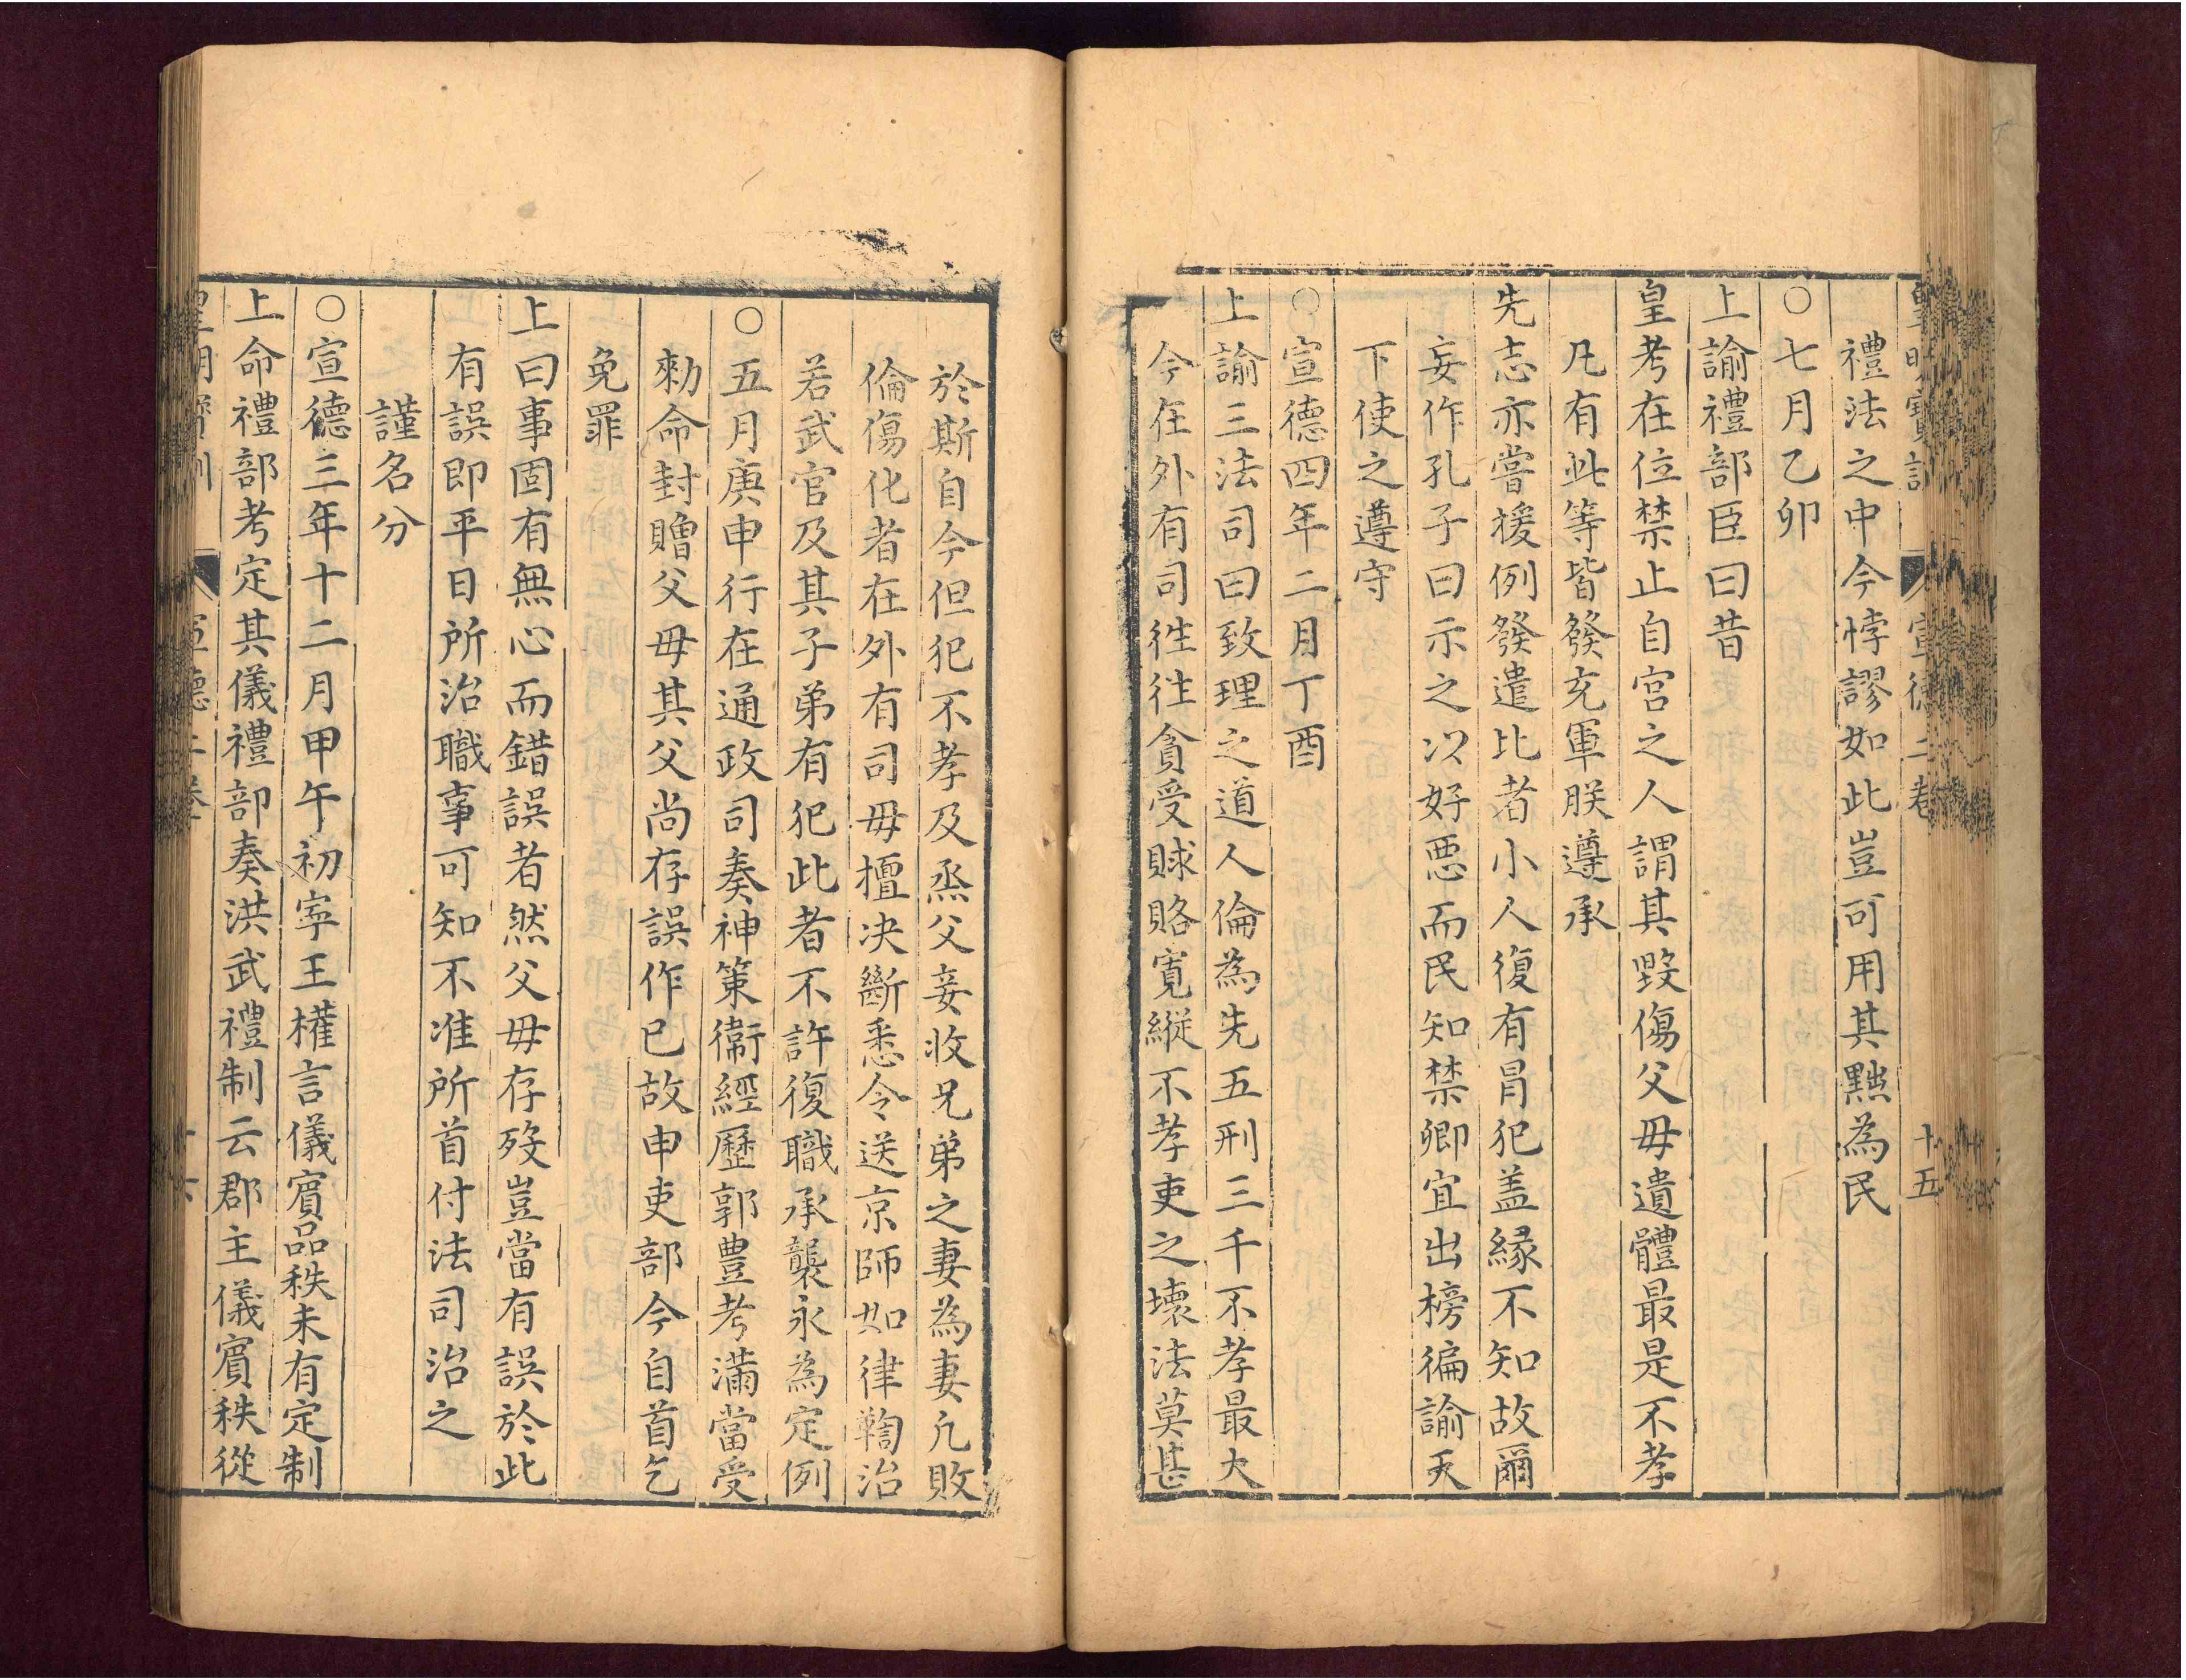 皇明寶訓 宣德二卷 十五
禮法之中今悖謬如此豈可用其黜為民
○七月乙卯
上諭禮部臣曰昔
皇考在位禁止自宮之人謂其毀傷父母遺體最是不孝
凡有此等皆發充軍朕遵承
先志亦嘗援例發遣比者小人復有冐犯盖緣不知故爾
妄作孔子曰示之以好惡而民知禁卿宜出榜徧諭天
下使之遵守
○宣德四年二月丁酉
上諭三法司曰致理之道人倫為先五刑三千不孝最大
今在外有司徃徃貪受賕賂寬縱不孝吏之壞法莫甚
於斯自今但犯不孝及烝父妾收兄弟之妻為妻凢敗
倫傷化者在外有司毋擅决斷悉令送京師如律鞫治
若武官及其子弟有犯此者不許復職承襲永為定例
○五月庚申行在通政司奏神策衞經歷郭豊考滿當受
勑命封贈父母其父尚存誤作已故申吏部今自首乞
免罪
上曰事固有無心而錯誤者然父母存殁豈當有誤於此
有誤即平日所治職事可知不准所首付法司治之
謹名分
○宣德三年十二月甲午初寧王權言儀賓品秩未有定制
上命禮部考定其儀禮部奏洪武禮制云郡主儀賓秩從